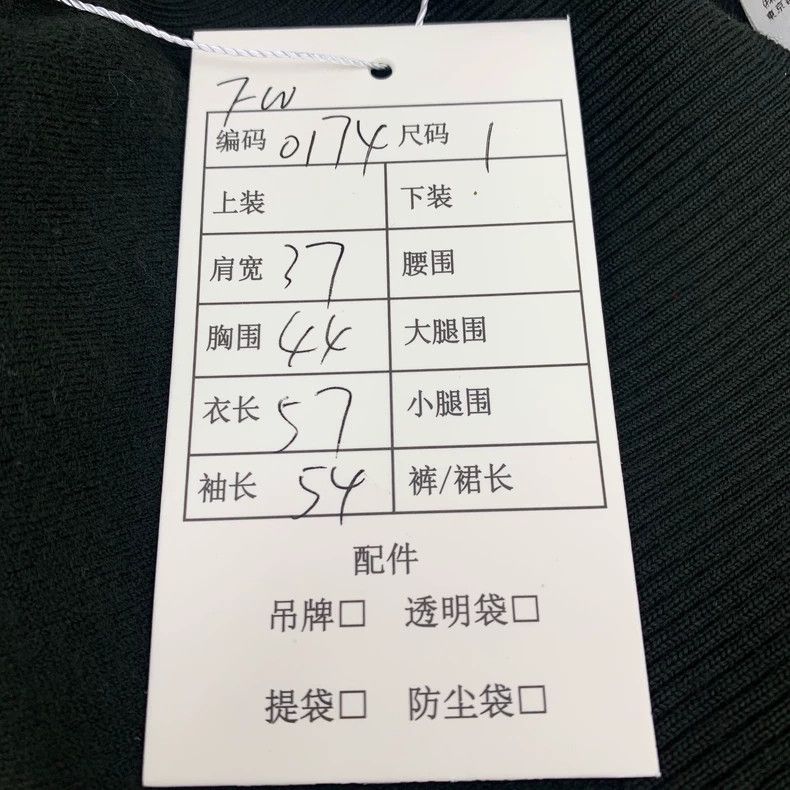 FW
编码 0174 尺码 1
上装 下装
肩宽 37 腰围
胸围 44 大腿围
衣长 57 小腿围
袖长 54 裤/裙长
配件
吊牌□ 透明袋□
提袋□ 防尘袋□